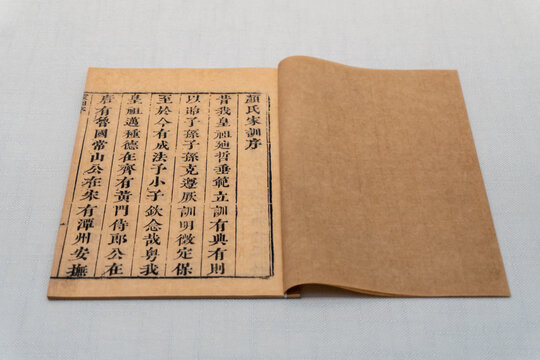 顏氏家訓序
昔我皇祖迪哲垂範立訓有典有則
以貽子孫子孫克遵厥訓明徵定保
至於今有成法予小子欽念哉粤我
皇祖邁種德在齊有黃門侍郎公在
唐有魯國常山公在宋有潭州安撫